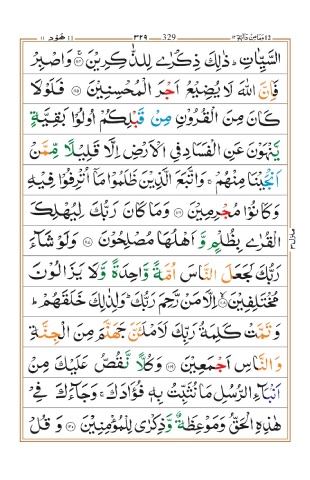 وما من دآبّة ١٢ ٣٢٩ 329 هُوْد ١١
السَّیِّاٰتِ ؕ ذٰلِكَ ذِكْرٰى لِلذّٰكِرِیْنَ ۚ﴿۱۱۴﴾ وَاصْبِرْ
فَاِنَّ اللّٰهَ لَا یُضِیْعُ اَجْرَ الْمُحْسِنِیْنَ ﴿۱۱۵﴾ فَلَوْلَا
كَانَ مِنَ الْقُرُوْنِ مِنْ قَبْلِكُمْ اُولُوْا بَقِیَّةٍ
یَّنْهَوْنَ عَنِ الْفَسَادِ فِی الْاَرْضِ اِلَّا قَلِیْلًا مِّمَّنْ
اَنْجَیْنَا مِنْهُمْ ۚ وَاتَّبَعَ الَّذِیْنَ ظَلَمُوْا مَاۤ اُتْرِفُوْا فِیْهِ
وَكَانُوْا مُجْرِمِیْنَ ﴿۱۱۶﴾ وَمَا كَانَ رَبُّكَ لِیُهْلِكَ
الْقُرٰى بِظُلْمٍ وَّ اَهْلُهَا مُصْلِحُوْنَ ﴿۱۱۷﴾ وَلَوْ شَآءَ
رَبُّكَ لَجَعَلَ النَّاسَ اُمَّةً وَّاحِدَةً وَّلَا یَزَالُوْنَ
مُخْتَلِفِیْنَ ۙ﴿۱۱۸﴾ اِلَّا مَنْ رَّحِمَ رَبُّكَ ؕ وَلِذٰلِكَ خَلَقَهُمْ ؕ
وَ تَمَّتْ كَلِمَةُ رَبِّكَ لَاَمْلَئَنَّ جَهَنَّمَ مِنَ الْجِنَّةِ
وَالنَّاسِ اَجْمَعِیْنَ ﴿۱۱۹﴾ وَكُلًّا نَّقُصُّ عَلَیْكَ مِنْ
اَنْۢبَآءِ الرُّسُلِ مَا نُثَبِّتُ بِهٖ فُؤَادَكَ ۚ وَجَآءَكَ فِیْ
هٰذِهِ الْحَقُّ وَمَوْعِظَةٌ وَّذِكْرٰى لِلْمُؤْمِنِیْنَ ﴿۱۲۰﴾ وَ قُلْ